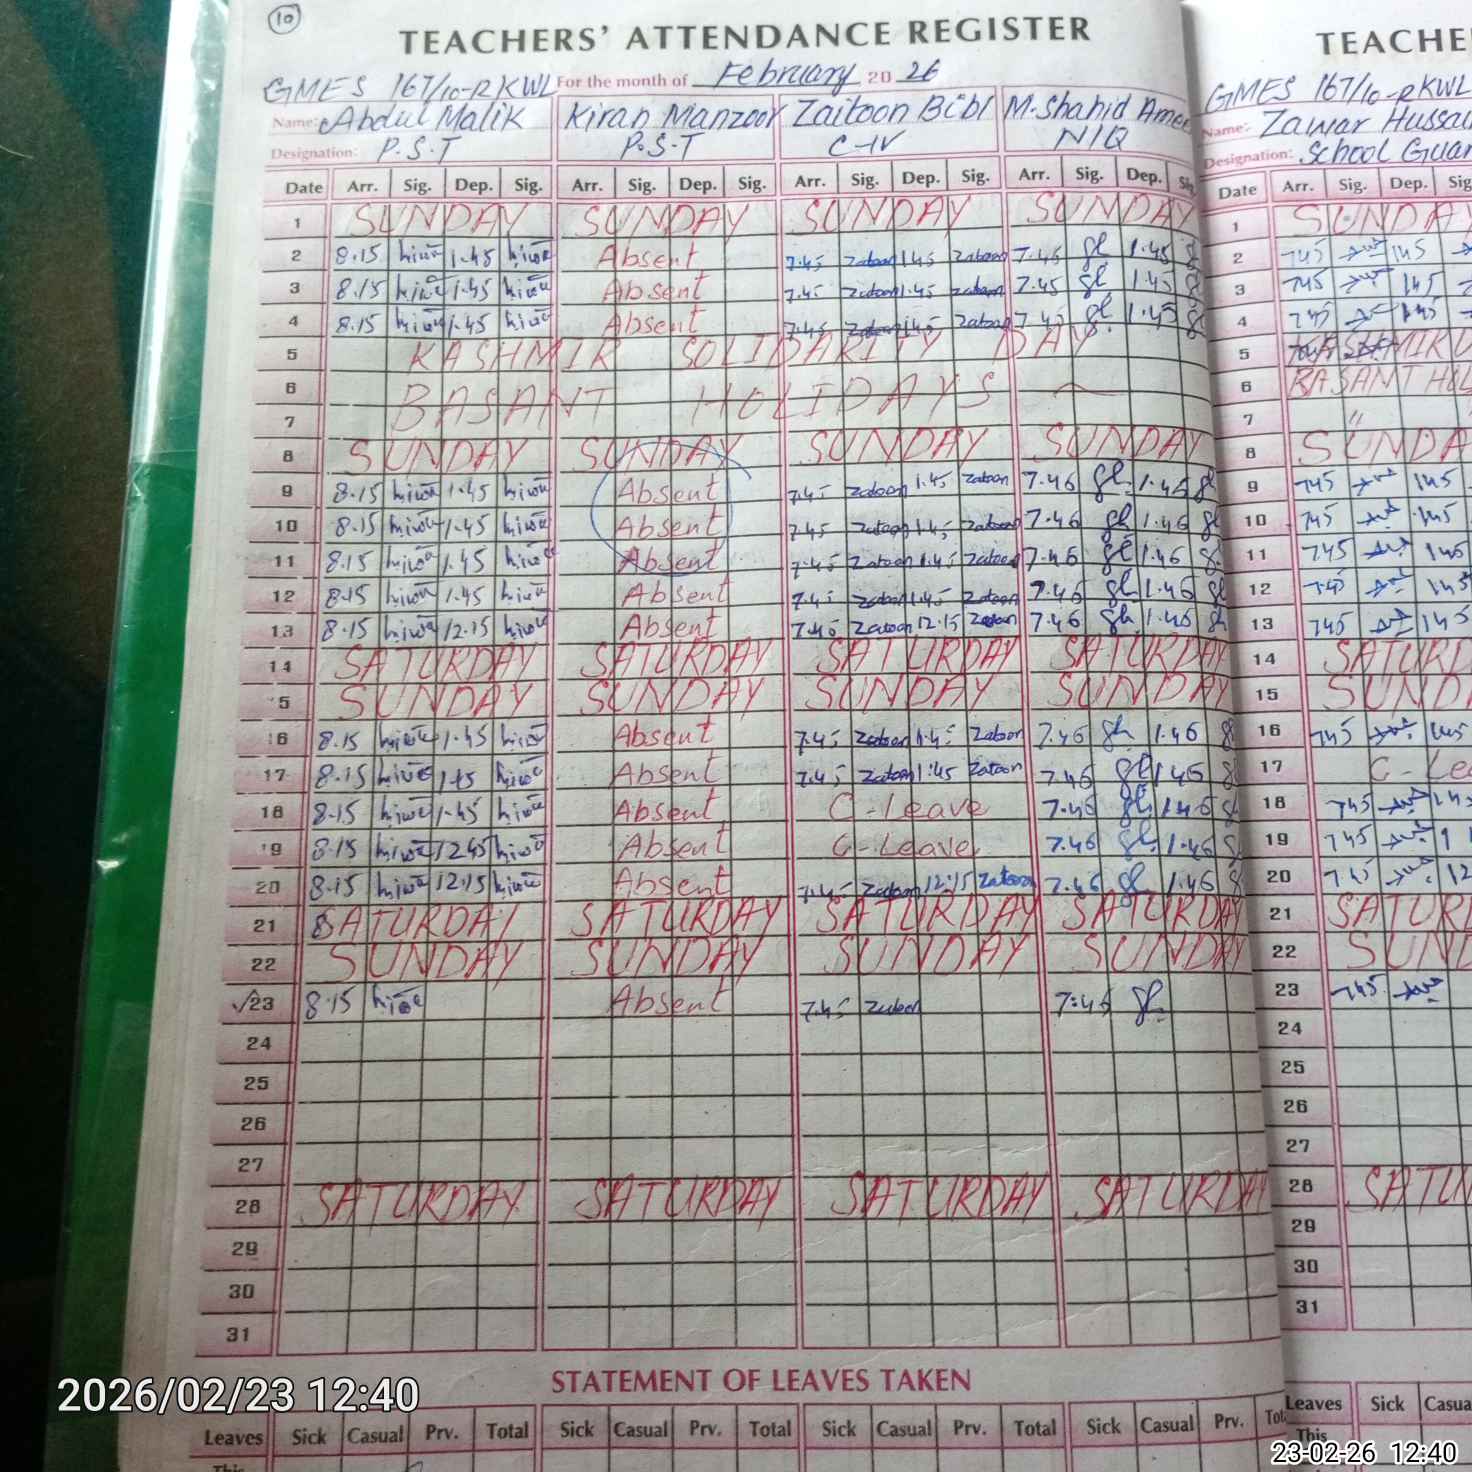 10
TEACHERS' ATTENDANCE REGISTER
GMES 167/10-R KWL For the month of February 20 26
Name: Abdul Malik Kiran Manzoor Zaitoon Bibi M. Shahid Ameen
Designation: P.S.T P.S.T C-IV N/Q
Date Arr. Sig. Dep. Sig. Arr. Sig. Dep. Sig. Arr. Sig. Dep. Sig. Arr. Sig. Dep. Sig.
1 SUNDAY SUNDAY SUNDAY SUNDAY
2 8.15 1.45 Absent 7.45 Zatoon 1.45 Zatoon 7.45 1.45
3 8.15 1.45 Absent 7.45 Zatoon 1.45 Zatoon 7.45 1.45
4 8.15 1.45 Absent 7.45 Zatoon 1.45 Zatoon 7.45 1.45
5 KASHMIR SOLIDARITY DAY
6 BASANT HOLIDAYS
7
8 SUNDAY SUNDAY SUNDAY SUNDAY
9 8.15 1.45 Absent 7.45 Zatoon 1.45 Zatoon 7.46 1.46
10 8.15 1.45 Absent 7.45 Zatoon 1.45 Zatoon 7.46 1.46
11 8.15 1.45 Absent 7.45 Zatoon 1.45 Zatoon 7.46 1.46
12 8.15 1.45 Absent 7.45 Zatoon 1.45 Zatoon 7.46 1.46
13 8.15 12.15 Absent 7.45 Zatoon 12.15 Zatoon 7.46 1.46
14 SATURDAY SATURDAY SATURDAY SATURDAY
15 SUNDAY SUNDAY SUNDAY SUNDAY
16 8.15 1.45 Absent 7.45 Zatoon 1.45 Zatoon 7.46 1.46
17 8.15 1.45 Absent 7.45 Zatoon 1:45 Zatoon 7.46 1.46
18 8.15 1.45 Absent C-Leave 7.46 1.46
19 8.15 12.45 Absent C-Leave 7.46 1.46
20 8.15 12.15 Absent 7.45 Zatoon 12.15 Zatoon 7.46 1.46
21 SATURDAY SATURDAY SATURDAY SATURDAY
22 SUNDAY SUNDAY SUNDAY SUNDAY
√23 8.15 Absent 7.45 Zatoon 7:46
24
25
26
27
28 SATURDAY SATURDAY SATURDAY SATURDAY
29
30
31
STATEMENT OF LEAVES TAKEN
Leaves Sick Casual Prv. Total Sick Casual Prv. Total Sick Casual Prv. Total Sick Casual Prv. Tot
This
TEACHE
GMES 167/10-R KWL
Name: Zawar Hussai
Designation: School Guar
Date Arr. Sig. Dep. Sig
1 SUNDAY
2 745 145
3 745 145
4 745 145
5 KASHMIR
6 BASANT HOL
7 "
8 SUNDA
9 745 145
10 745 145
11 745 145
12 745 145
13 745 145
14 SATURD
15 SUNDA
16 745 145
17 C-Lea
18 745 145
19 745 1
20 745 12
21 SATUR
22 SUND
23 745
24
25
26
27
28 SATU
29
30
31
Leaves Sick Casua
This
2026/02/23 12:40
23-02-26 12:40